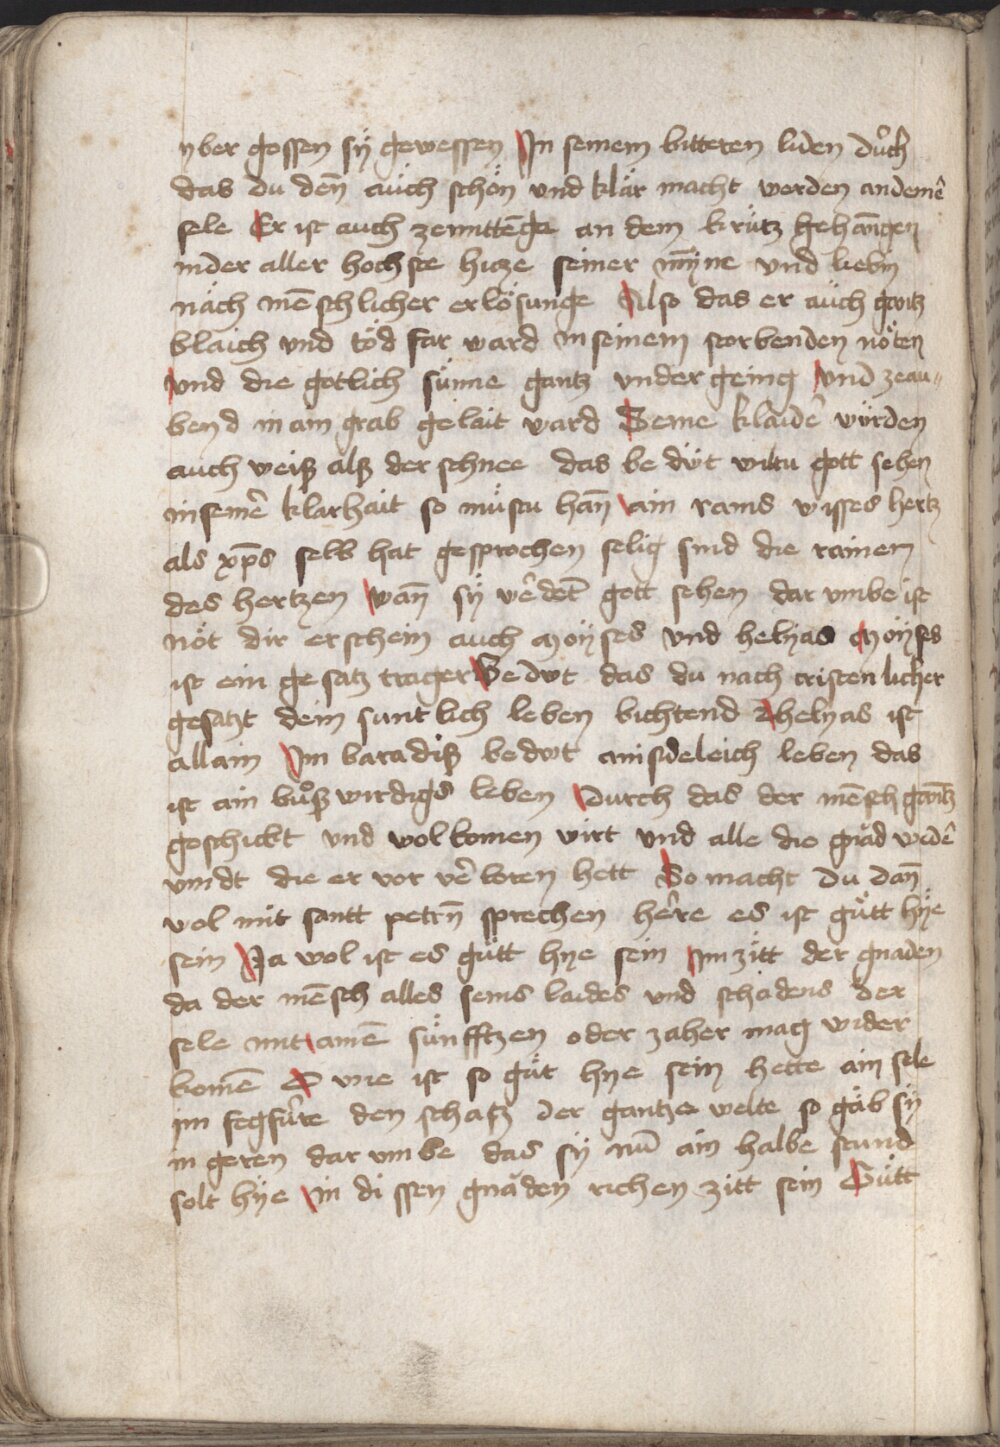 yber gossen sÿ gewessen In seinem bitteren liden dúch
das du den̄ aúch schön vnd klär macht werden an demē
sele Er ist auch ze mittḗge an dem krútz gehān̄gen
in der aller hochste hitze seiner mȳne vnd liebin
näch mēschlicher erlösunge Also das er aúch gantz
blaich vnd töd far ward in seinem sterbenden nöten
vnd die gotlich súnne gantz vnder geing vnd ze au„
bend in ain grab gelait ward Seine klaidē würden
auch weiß alß der schnee das be dút wiltu gott sehen
in seinē klarhait so müstu han̄ ain rains wisses hertz
als xp̄s selb hat gesprochen selig sind die rainen
des hertzen wan̄ sÿ wēdet gott sehen dar vmbe ist
nöt dir erschein auch moÿses vnd helyas Moÿses
ist ein gesatz trager Bedút das du nach cristenlicher
gesatzt dein suntlich leben bichtend Helyas ist
allain Im baradiß bedút ainsideleich leben das
ist ain bůß wirdigs leben Durch das der mēsch gantz
geschickt vnd volkomen wirt vnd alle die gnäd widē
vindt die er vor vē loren hett So macht du dan̄
wol mit santt petrn̄ sprechen hēre es ist gútt hÿe
sein Ja wol ist es gútt hye sein Im zitt der gnaden
da der mēsch alles seins laides vnd schadens der
sele mit ainē súnfftzen oder zaher mag wider
komē O wie ist so gút hye sein hette ain sele
im fegfúre den schatz der gantzen welte so gäb sÿ
in geren dar vmbe das sÿ nū ain halbe stund
solt hÿe in dissen gnäden richen zitt sein Gútt